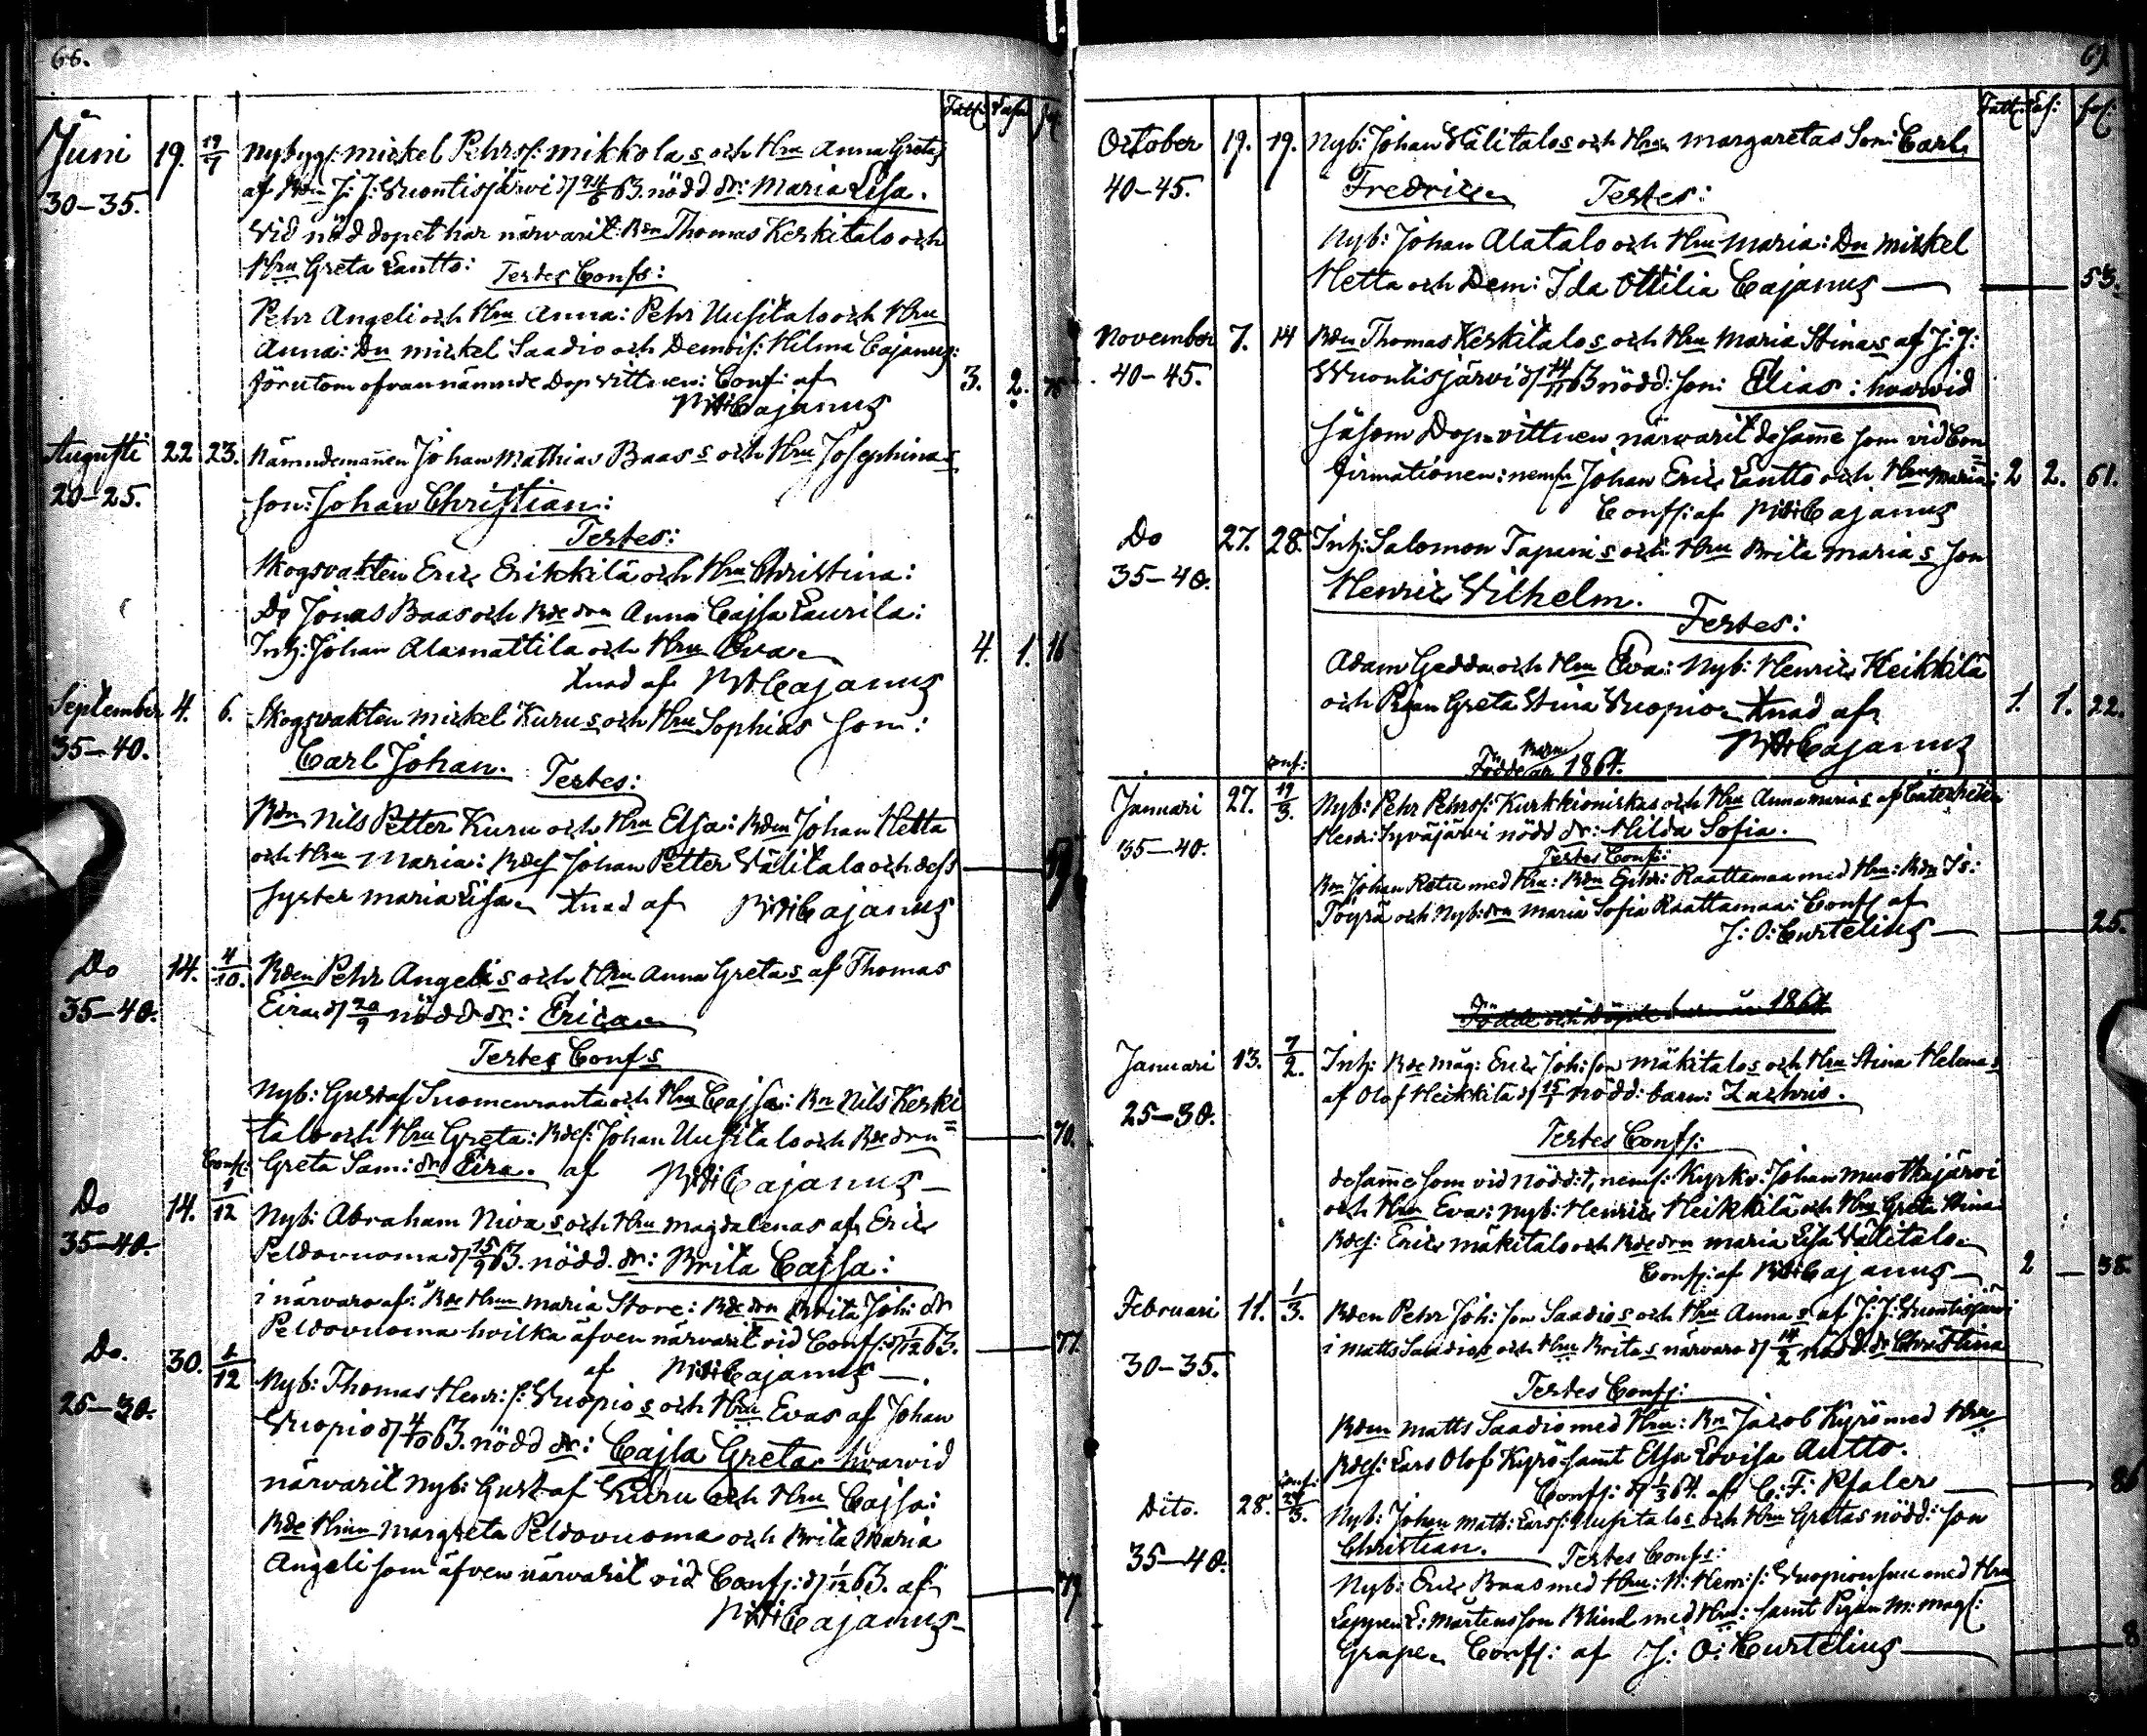 66.
Fatt: Läsn
Juni 19. 19/7 Nybygs: Mickel Pehrss: Mikkolas och Hru Anna Gretas
30–35. af Rdn J: J: Wuontisjärvi d 24/6 63. nödd dr: Maria Lisa.
Vid nöddopet har närvarit: Rdn Thomas Keskitalo och
Hru Greta Lantto: Testes Conf:
Pehr Angeli och Hru Anna: Pehr Uusitalo och Hru
Anna: Dn Mickel Saadio och Demois: Hilma Cajanus:
förutom ofvannämnde Dopvittnen: Conf: af 3. 2. 75
Cajanus
Augusti 22 23. Nämndemannen Johan Mathias Baass och Hru Josephinas
20–25. son: Johan Christian:
Testes:
Skogsvakten Eric Erikkilä och Hru Christina:
Do Jonas Baas och Rde drn Anna Cajsa Laurila:
Inh: Johan Alamattila och Hru Eva 4. 1. 16
Xnad af Cajanus
September 4. 6. Skogsvakten Mickel Kurus och Hru Sophias Son:
35–40. Carl Johan. Testes:
Rdn Nils Petter Kuru och Hru Elsa: Rdn Johan Hetta
och Hru Maria: Rdes: Johan Petter Välitalo och dess
Syster Maria Lisa Xnad af Cajanus
Do 14. 4/10. Rden Pehr Angelis och Hru Anna Gretas af Thomas
35–40. Eira d 20/9 nödd dr: Erica
Testes Confs
Nyb: Gustaf Suomenranta och Hru Cajsa: Rn Nils Keski
talo och Hru Greta: Rdes: Johan Uusitalo och Rde drn 70.
Greta Sam: dr Eira. af Cajanus
Conf:
Do 14. 1/12 Nyb: Abraham Nivas och Hru Magdalenas af Eric
35–40. Peldovuoma d 15/9 63. nödd. dr: Brita Cajsa:
i närvaro af: Rde Hrun Maria Store: Rde drn Brita Joh: dr
Peldovuoma hvilka äfven närvarit vid Conf: d 1/12 63. 77.
af Cajanus
Do. 30. 1/12 Nyb: Thomas Henr: s: Wuopios och Hru Evas af Johan
25–30. Wuopio d 4/10 63. nödd dr: Cajsa Greta hvarvid
närvarit Nyb: Gustaf Kuru och Hru Cajsa:
Rde Hrun Margreta Peldovuoma och Brita Maria
Angeli som äfven närvarit vid Conf: d 1/12 63. af 79
Cajanus
Fatt: Läs: fol:
October 19. 19. Nyb: Johan Välitalos och Hrus Margaretas Son: Carl
40–45. Fredric Testes:
Nyb: Johan Alatalo och Hru Maria: Dn Mickel
Hetta och Dem: Ida Ottilia Cajanus 53.
November 7. 14 Rdn Thomas Keskitalos och Hru Maria Stinas af J: J:
40–45. Wuontisjärvi d 14/11 63 nödd: son: Elias: hvarvid
såsom Dopvittnen närvarit desamme som vid Con
firmationen: neml: Johan Eric Lantto och Hru Maria: 2 2. 61.
Confs: af Cajanus
Do 27. 28. Inh: Salomon Tapanis och Hru Brita Marias Son
35–40. Henric Wilhelm.
Testes:
Adam Gedda och Hru Eva: Nyb: Henric Heikkilä
och Pigan Greta Stina Wuopio Xnad af 1. 1. 22.
Cajanus
Födde Barn år 1864.
Conf:
Januari 27. 19/3. Nyb: Pehr Pehrss: Kurkkioniskas och Hru Anna Marias af
35–40. Henr: Syväjärvi nödd dr: Hilda Sofia.
Testes Conf:
Rn Johan Rotu med Hru: Rdn Raattamaa med Hru: Rdn Is:
Töyrä och Nyb: drn Maria Sofia Raattamaa: Conf af
J: O: Curtelius 25.
Födde och döpte barn år 1864
Januari 13. 7/2. Inh: Rde måg: Eric Joh: son Mäkitalos och Hru Stina Helenas
25–30. af Olof Heikkilä d 15/1 nödd: barn: Zachris.
Testes Conf:
desamme som vid nödd: t, neml: Kyrkv: Johan Muotkajärvi
och Hru Eva: Nyb: Henric Heikkilä och Hru Greta Stina
Rdes: Eric Mäkitalo och Rde drn Maria Lisa Välitalo
Conf: af Cajanus 2 — 38.
Februari 11. 1/3. Rden Pehr Joh: son Saadios och Hru Annas af J: J: Wuontisjärvi
30–35. i Matts Saadios och Hru Britas närvaro d 14/2 nödd. dr Christina
Testes Conf:
Rden Matts Saadio med Hru: Rn Jacob Kyrö med Hru
Rdes: Lars Olof Kyrö samt Elsa Lovisa Autto.
Conf: d 1/3 64. af C: F: Pfaler 86
Conf:
Dito. 28. Nyb: Johan Math: Larss: Uusitalos och Hru Gretas nödd: son
35–40. Christian. Testes Conf:
Nyb: Eric Baas med Hru: N: Henr: s: Wuopionsuu med Hru
Lappen L: Mårtensson Blind med Hru: samt Pigan M: Mags:
Grape Conf: af J: O: Curtelius 8